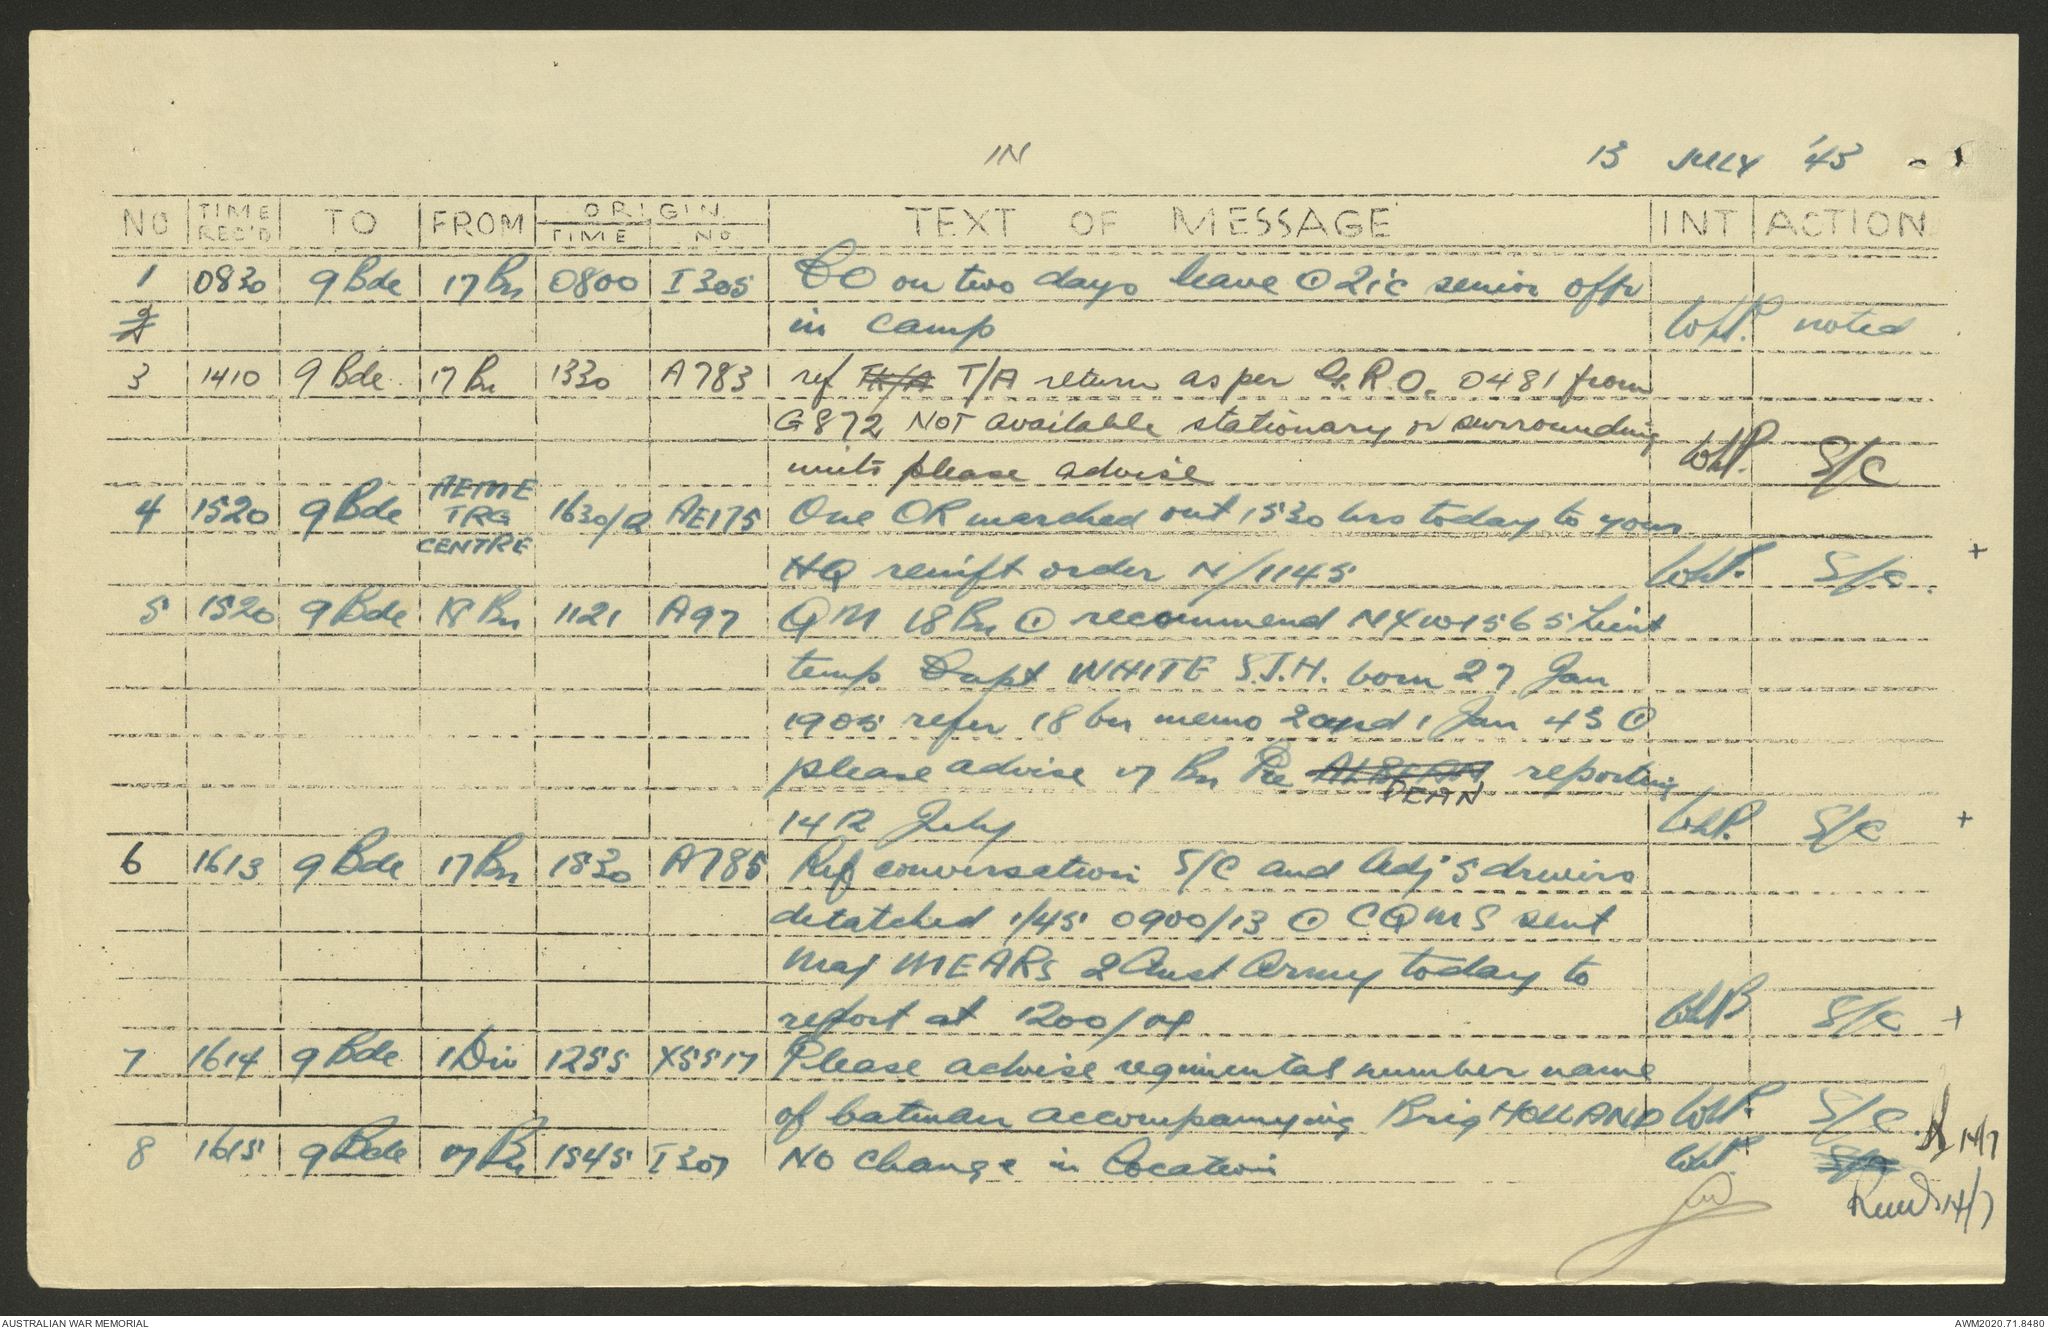 IN
13 JULY '43
NO TIME REC'D TO FROM ORIGIN TIME NO TEXT OF MESSAGE INT ACTION
1 0830 9 Bde 17 Bn 0800 I305 CO on two days leave ① 2i/c senior offr
2 in camp WhP. noted
3 1410 9 Bde 17 Bn 1330 A783 ref T/A return as per G.R.O. 0481 from
G872 NOT available stationary or surrounding
units please advise WhP. S/C
4 1520 9 Bde AEME TRG CENTRE 1630/12 AE175 One OR marched out 1530 hrs today to your
HQ reinft order N/1145 WhP. S/C. +
5 1520 9 Bde 18 Bn 1121 A97 QM 18 Bn ① recommend NX101565 Lieut
temp Capt WHITE S.J.H. born 27 Jan
1905 refer 18 bn memo 2 and 1 Jan 43 ①
please advise 17 Bn Pte DEAN reporting
14 12 July WhP. S/C +
6 1613 9 Bde 17 Bn 1530 A785 Ref conversation S/C and Adj 5 drivers
detatched 1/45 0900/13 ① CQMS sent
Maj MEARS 2 Aust Army today to
report at 1200/ WhP S/C +
7 1614 9 Bde 1 Div 1255 X5517 Please advise regimental number name
of batman accompanying Brig HOLLAND WhP. S/C. 14/7
8 1615 9 Bde 17 Bn 1545 I307 No change in location WhP
14/7
AUSTRALIAN WAR MEMORIAL
AWM2020.71.8480